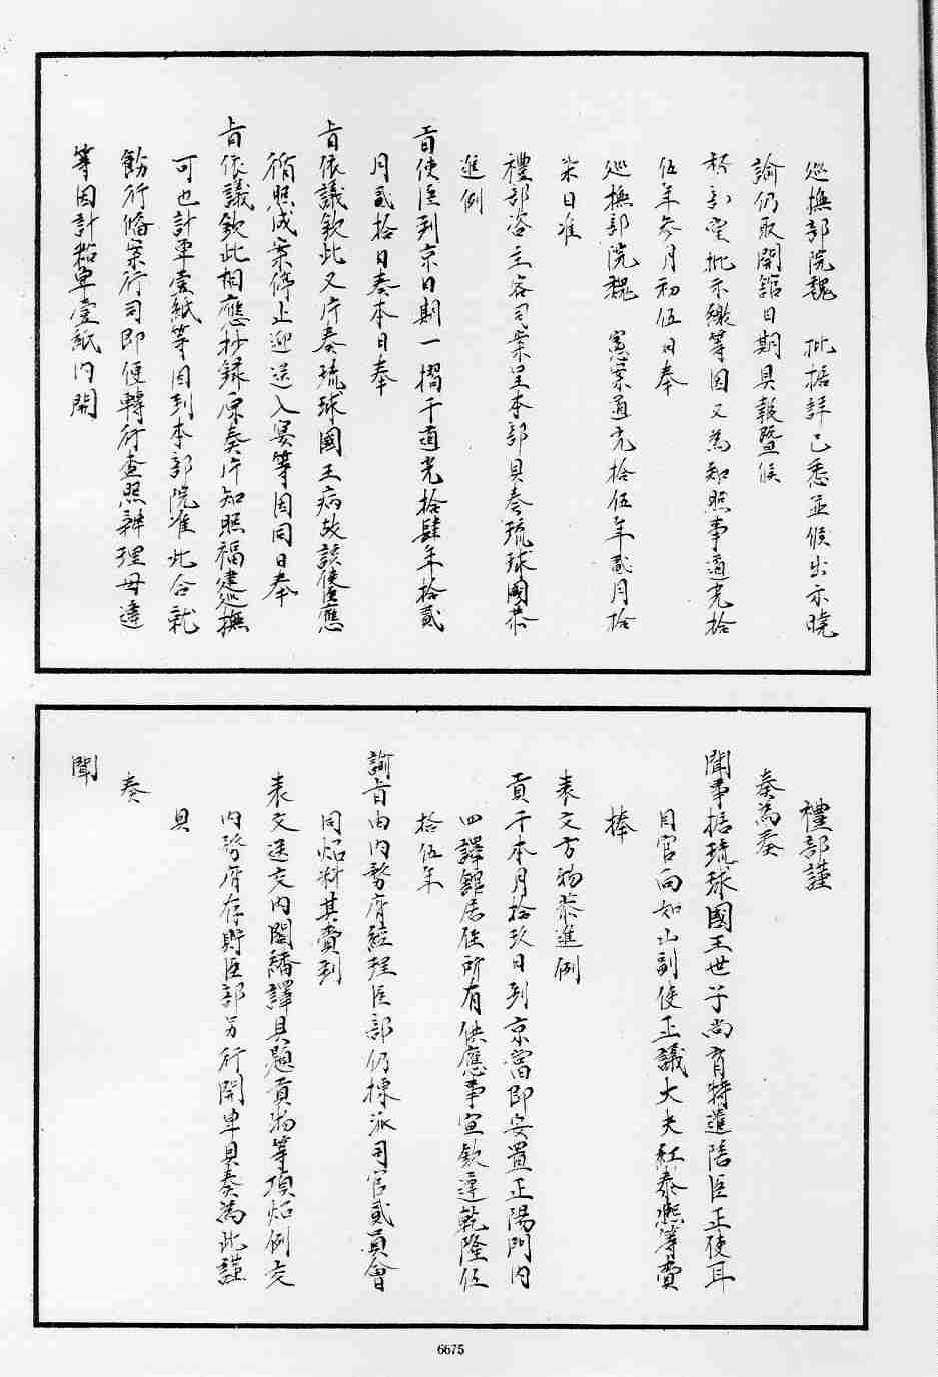 巡撫部院魏　批據詳已悉並候出示曉
諭仍取開館日期具報暨候
督部堂批示繳等因又為知照事道光拾
伍年參月初伍日奉
巡撫部院魏　憲案道光拾伍年貳月拾
柒日准
禮部咨主客司案呈本部具奏琉球國恭
進例
貢使臣到京日期一摺于道光拾肆年拾貳
月貳拾日奏本日奉
旨依議欽此又片奏琉球國王病故該使臣應
循照成案停止迎送入宴等因同日奉
旨依議欽此相應抄錄原奏片知照福建巡撫
可也計單壹紙等因到本部院准此合就
飭行備案行司即便轉行查照辦理毋違
等因計粘單壹紙內開
禮部謹
奏為奏
聞事據琉球國王世子尚育特遣陪臣正使耳
目官向如山副使正議大夫紅泰熙等賫
捧
表文方物恭進例
貢于本月拾玖日到京當即安置正陽門內
四譯館居住所有供應事宜欽遵乾隆伍
拾伍年
諭旨由內務府經理臣部仍揀派司官貳員會
同炤料其賫到
表文送交內閣繙譯具題貢物等項炤例交
內務府存貯臣部另行開單具奏為此謹
具
奏
聞
6675